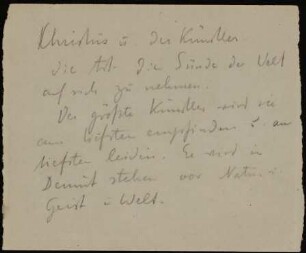 Christus u der Künstler
die Art die Sünde der Welt
auf sich zu nehmen.
Der größte Künstler wird sie
am tiefsten empfinden u. am
tiefsten leiden. Er wird in
Demut stehen vor Natur
Geist u Welt.